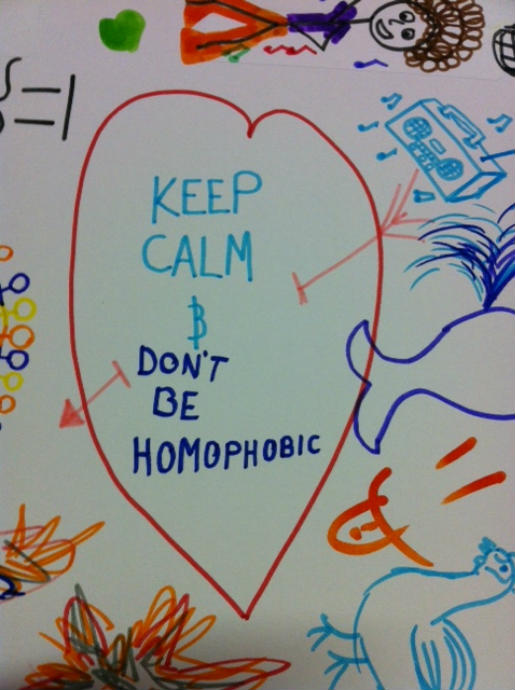 KEEP
CALM
&
DON'T
BE
HOMOPHOBIC